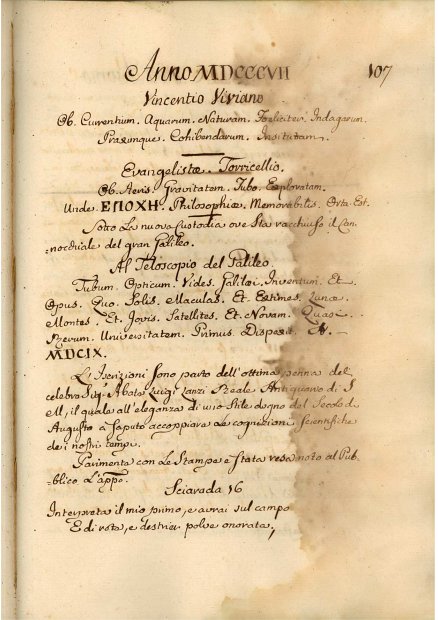 Anno MDCCCVII 107
Vincentio Viviano
Ob. Currentium. Aquarum. Naturam. Feliciter. Indagarum.
Praximque. Cohibendarum. Institutam.
Evangelistæ Torricellio.
Ob. Aeris. Gravitatem. Tubo. Exploratam.
Unde. ΕΠΟΧΗ. Philosophiæ. Memorabilis. Orta. Est.
Sotto La nuova Custodia ove Sta racchiuso il Can-
nocchiale del gran Galileo.
Al Teloscopio del Galileo
Tubum. Opticum. Vides. Galilæi. Inventum. Et
Opus. Quo. Solis. Maculas. Et. Extimos. Lunæ.
Montes. Et. Jovis. Satellites. Et. Novam. Quasi
Rerum. Universitatem. Primus. Dispexit.
MDCIX.
Le Iscrizioni sono parto dell'ottima penna del
celebra Sig.r Abate Luigi Lanzi Reale Antiquario di S.
il quale all'eleganza di uno Stile degno del Secolo di
Augusto à saputo accoppiare le cognizioni scientifiche
de i nostri tempi.
Parimenta con Le Stampe è stata resa noto al Pub-
blico L'appo.
Sciarada 16
Interpreta il mio primo, e avrai sul campo
E di rota, e destrier polve onorata;